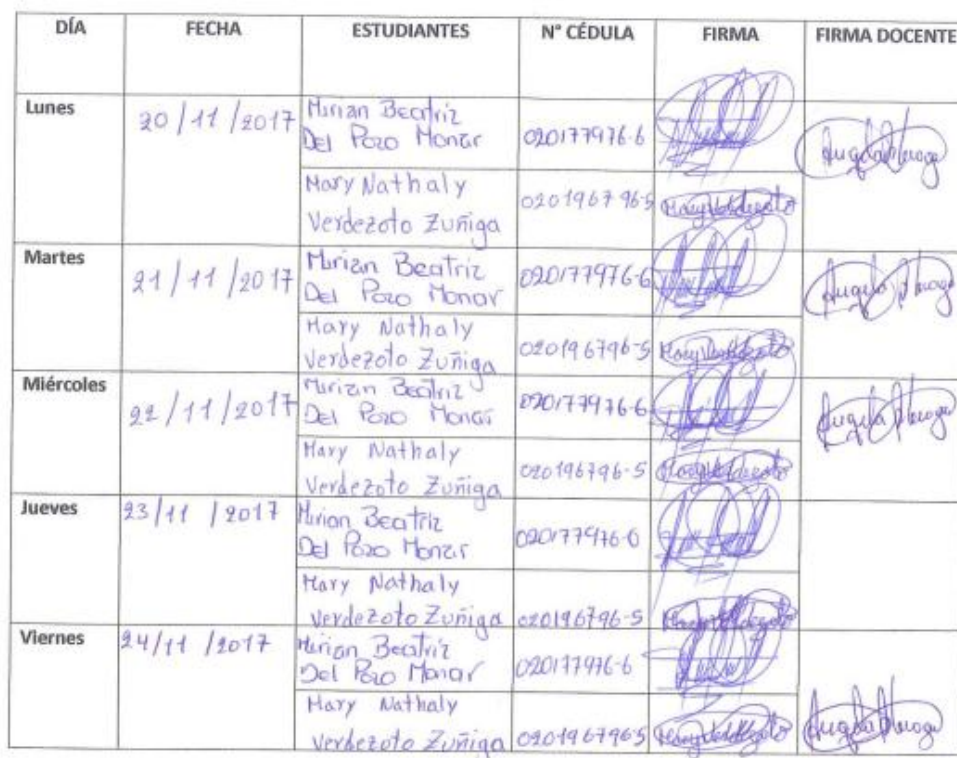 DÍA FECHA ESTUDIANTES N° CÉDULA FIRMA FIRMA DOCENTE
Lunes 20/11/2017 Mirian Beatriz
Del Pozo Monar 020177976-6
Mary Nathaly
Verdezoto Zuñiga 020196796-5
Martes 21/11/2017 Mirian Beatriz
Del Pozo Monar 020177976-6
Mary Nathaly
Verdezoto Zuñiga 020196796-5
Miércoles 22/11/2017 Mirian Beatriz
Del Pozo Monar 020177976-6
Mary Nathaly
Verdezoto Zuñiga 020196796-5
Jueves 23/11/2017 Mirian Beatriz
Del Pozo Monar 020177976-6
Mary Nathaly
Verdezoto Zuñiga 020196796-5
Viernes 24/11/2017 Mirian Beatriz
Del Pozo Monar 020177976-6
Mary Nathaly
Verdezoto Zuñiga 0201967965